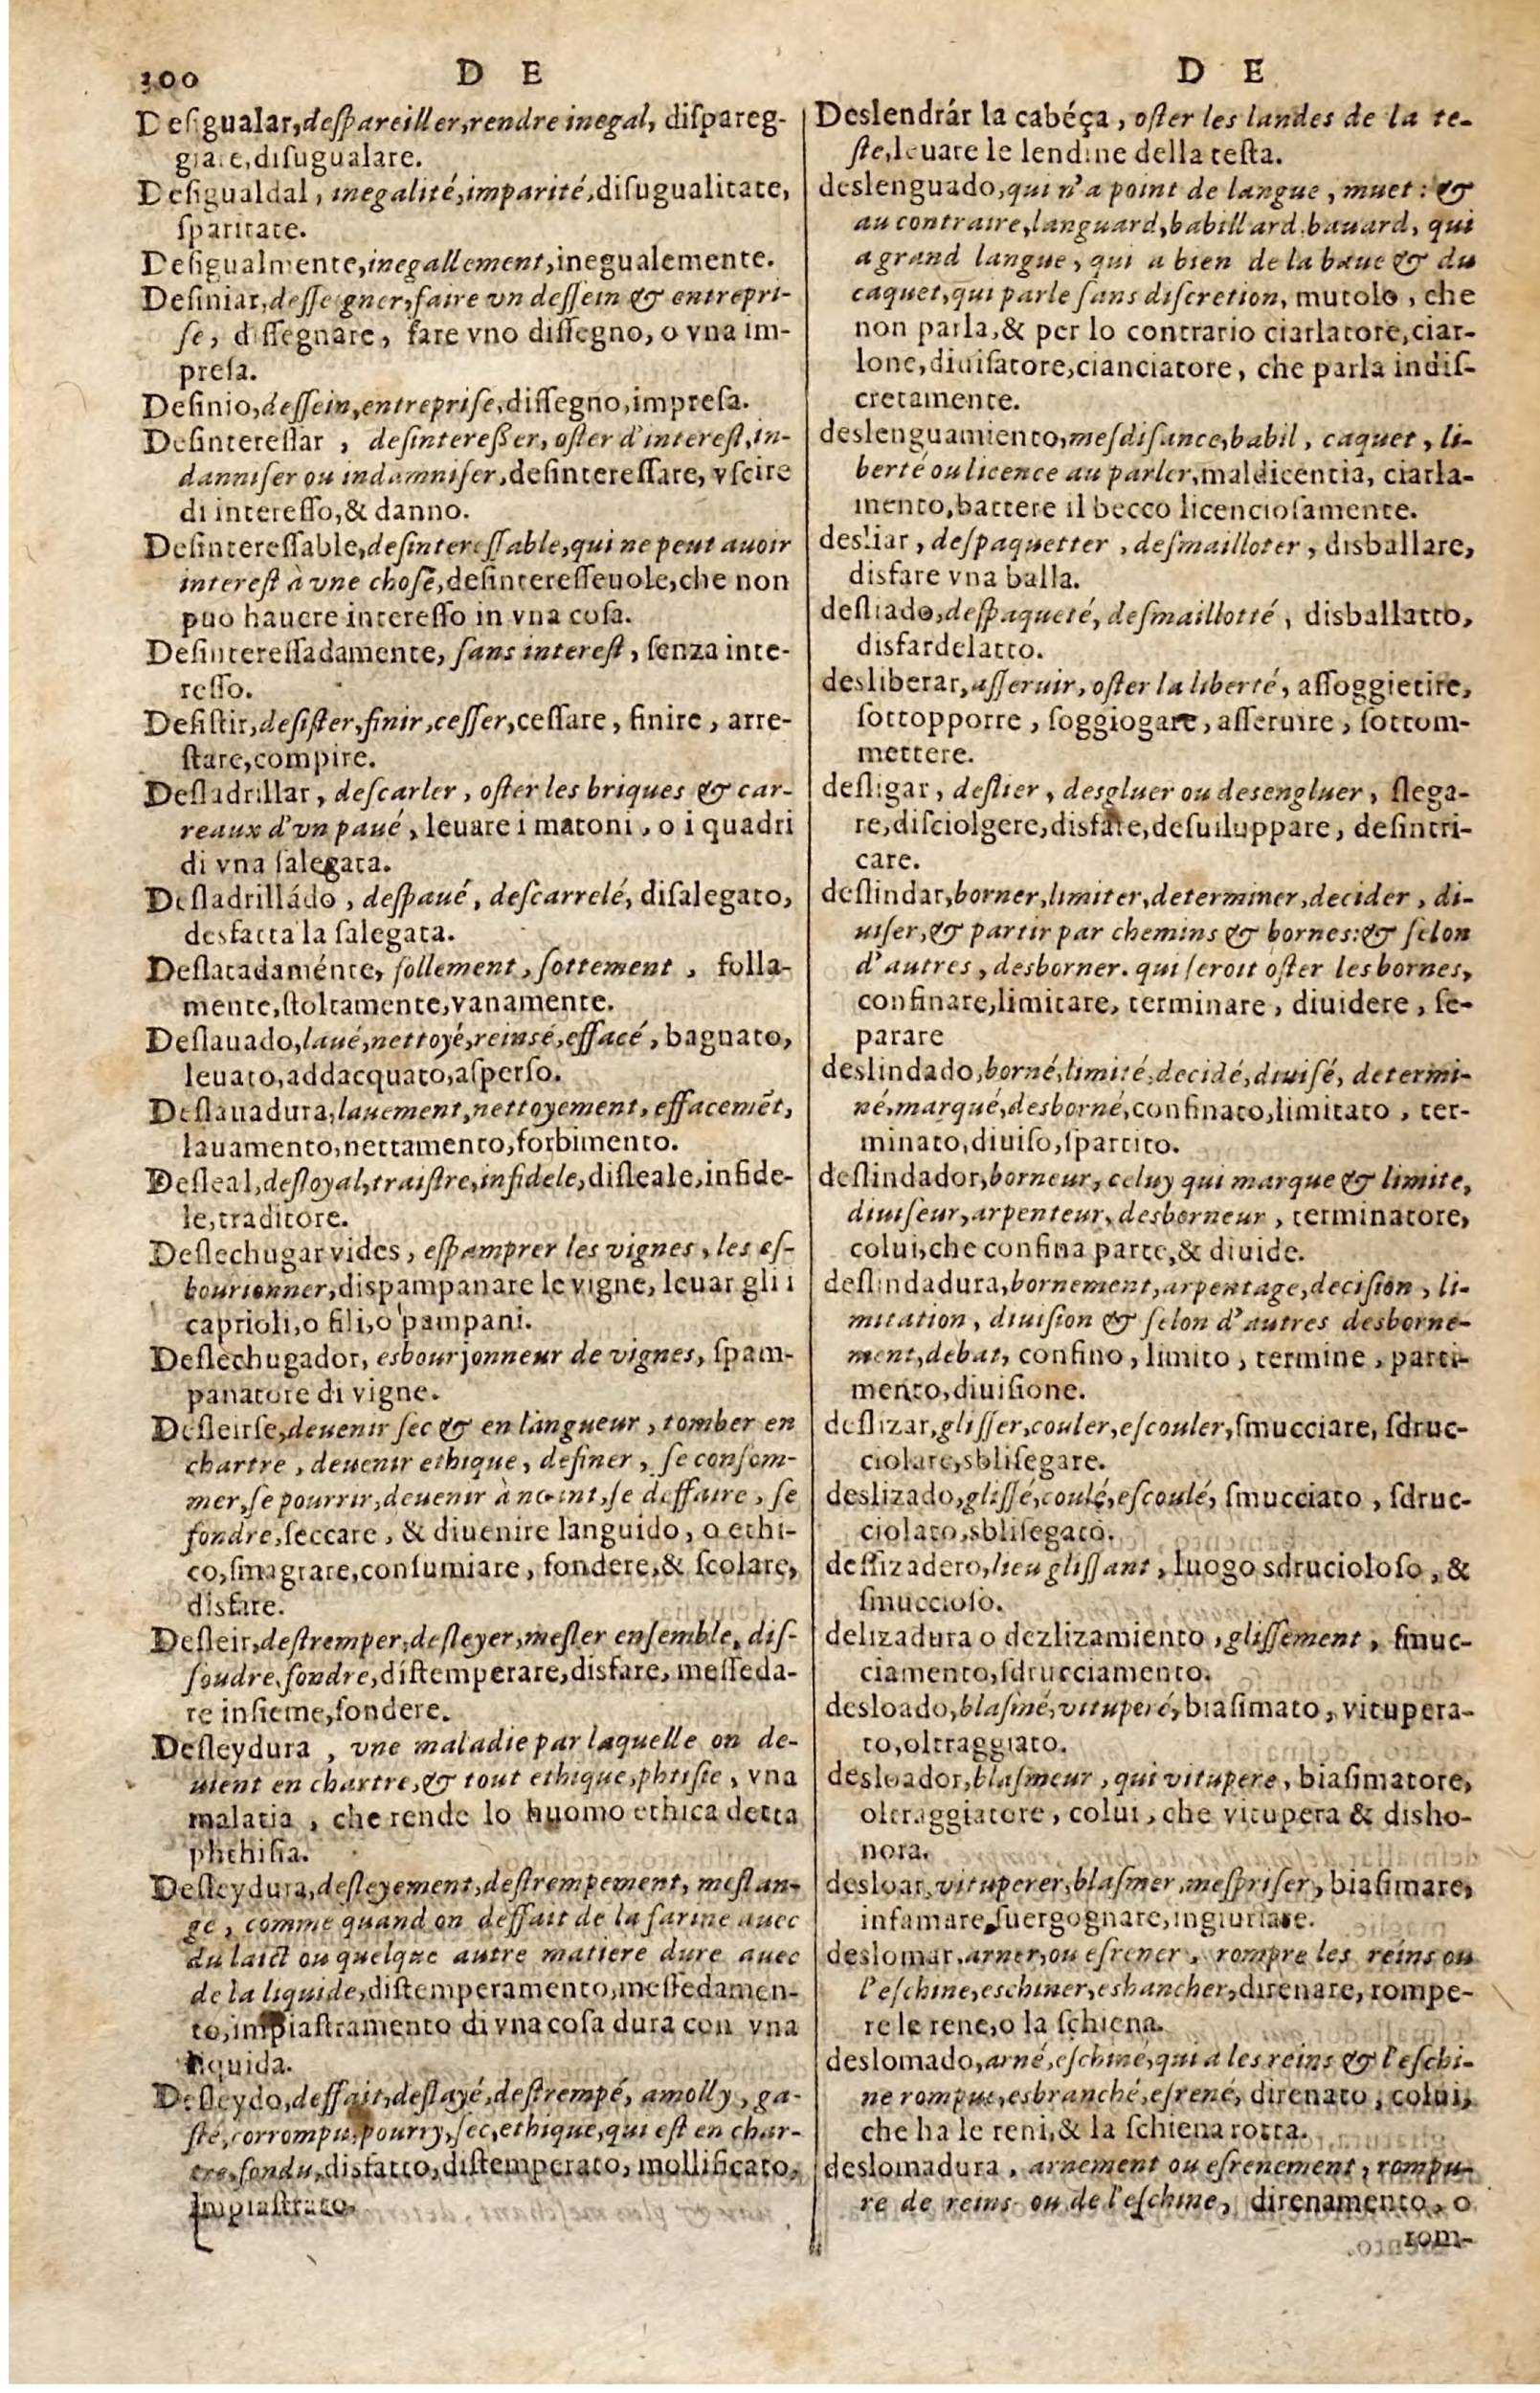 300
D E
Deſigualar, deſpareiller, rendre inegal, diſpareg-
giare, diſugualare.
Deſigualdal, inegalité, imparité, diſugualitate,
ſparitate.
Deſigualmente, inegallement, inegualemente.
Deſiniar, deſſeigner, faire vn deſſein & entrepri-
ſe, diſſegnare, fare vno diſſegno, o vna im-
preſa.
Deſinio, deſſein, entrepriſe, diſſegno, impreſa.
Deſintereſſar, deſintereßer, oſter d'intereſt, in-
danniſer ou indamniſer, deſintereſſare, vſcire
di intereſſo, & danno.
Deſintereſſable, deſintereſſable, qui ne peut auoir
intereſt à vne choſe, deſintereſſeuole, che non
puo hauere intereſſo in vna coſa.
Deſintereſſadamente, ſans intereſt, ſenza inte-
reſſo.
Deſiſtir, deſiſter, finir, ceſſer, ceſſare, finire, arre-
ſtare, compire.
Deſladrillar, deſcarler, oſter les briques & car-
reaux d'vn paué, leuare i matoni, o i quadri
di vna ſalegata.
Deſladrilládo, deſpaué, deſcarrelé, diſalegato,
desfatta la ſalegata.
Deſlatadaménte, follement, ſottement, folla-
mente, ſtoltamente, vanamente.
Deſlauado, laué, nettoyé, reinsé, effacé, bagnato,
leuato, addacquato, aſperſo.
Deſlauadura, lauement, nettoyement, effacemẽt,
lauamento, nettamento, forbimento.
Deſleal, deſloyal, traiſtre, infidele, diſleale, infide-
le, traditore.
Deſlechugar vides, eſpamprer les vignes, les eſ-
bourionner, dispampanare le vigne, leuar gli i
caprioli, o fili, o pampani.
Deſlechugador, esbourjonneur de vignes, ſpam-
panatore di vigne.
Deſleirſe, deuenir ſec & en langueur, tomber en
chartre, deuenir ethique, definer, ſe conſom-
mer, ſe pourrir, deuenir à neint, ſe deffaire, ſe
fondre, ſeccare, & diuenire languido, o ethi-
co, ſmagrare, conſumiare, fondere, & ſcolare,
disfare.
Deſleir, deſtremper, deſleyer, meſler enſemble, diſ-
ſoudre, fondre, diſtemperare, disfare, meſſeda-
re inſieme, fondere.
Deſleydura, vne maladie par laquelle on de-
uient en chartre, & tout ethique, phtiſie, vna
malatia, che rende lo huomo ethica detta
phthiſia.
Deſleydura, deſleyement, deſtrempement, meſlan-
ge, comme quand on deffait de la farine auec
du laict ou quelque autre matiere dure auec
de la liquide, diſtemperamento, meſſedamen-
to, impiaſtramento di vna coſa dura con vna
liquida.
Deſleydo, deffait, deſlayé, deſtrempé, amolly, ga-
ſté, corrompu, pourry, ſec, ethique, qui eſt en char-
tre, fondu, disfatto, diſtemperato, mollificato,
impiaſtrato.
D E
Deslendrár la cabéça, oſter les landes de la te-
ſte, leuare le lendine della teſta.
deslenguado, qui n'a point de langue, muet: &
au contraire, languard, babillard, bauard, qui
a grand langue, qui a bien de la baue & du
caquet, qui parle ſans diſcretion, mutolo, che
non parla, & per lo contrario ciarlatore, ciar-
lone, diuiſatore, cianciatore, che parla indiſ-
cretamente.
deslenguamiento, mesdiſance, babil, caquet, li-
berté ou licence au parler, maldicentia, ciarla-
mento, battere il becco licencioſamente.
desliar, deſpaquetter, deſmailloter, disballare,
disfare vna balla.
desliado, deſpaqueté, deſmaillotté, disballatto,
disfardelatto.
desliberar, aſſeruir, oſter la liberté, aſſoggietire,
ſottopporre, ſoggiogare, aſſeruire, ſottom-
mettere.
desligar, deſlier, desgluer ou desengluer, ſlega-
re, diſciolgere, disfare, deſuiluppare, deſintri-
care.
deſlindar, borner, limiter, determiner, decider, di-
uiſer, & partir par chemins & bornes: & ſelon
d'autres, desborner. qui ſeroit oſter les bornes,
confinare, limitare, terminare, diuidere, ſe-
parare
deslindado, borné, limité, decidé, diuiſé, determi-
né, marqué, desborné, confinato, limitato, ter-
minato, diuiſo, ſpartito.
deſlindador, borneur, celuy qui marque & limite,
diuiſeur, arpenteur, desborneur, terminatore,
colui, che confina parte, & diuide.
deſlindadura, bornement, arpentage, deciſion, li-
mitation, diuiſion & ſelon d'autres desborne-
ment, debat, confino, limito, termine, parti-
mento, diuiſione.
deſlizar, gliſſer, couler, eſcouler, ſmucciare, ſdruc-
ciolare, sbliſegare.
deslizado, gliſſé, coulé, eſcoulé, ſmucciato, ſdruc-
ciolato, sbliſegato.
deſlizadero, lieu gliſſant, luogo sdrucioloſo, &
ſmuccioſo.
delizadura o dezlizamiento, gliſſement, ſmuc-
ciamento, ſdrucciamento.
desloado, blaſmé, vituperé, biaſimato, vitupera-
to, oltraggiato.
desloador, blaſmeur, qui vitupere, biaſimatore,
oltraggiatore, colui, che vitupera & disho-
nora.
desloar, vituperer, blaſmer, meſpriſer, biaſimare,
infamare, ſuergognare, ingiuriare.
deslomar, arner, ou eſrener, rompre les reins ou
l'eſchine, eschiner, eshancher, direnare, rompe-
re le rene, o la ſchiena.
deslomado, arné, eſchiné, qui a les reins & l'eſchi-
ne rompue, esbranché, eſrené, direnato, colui,
che ha le reni, & la ſchiena rotta.
deslomadura, arnement ou eſrenement, rompu-
re de reins ou de l'eſchine, direnamento, o
rom-